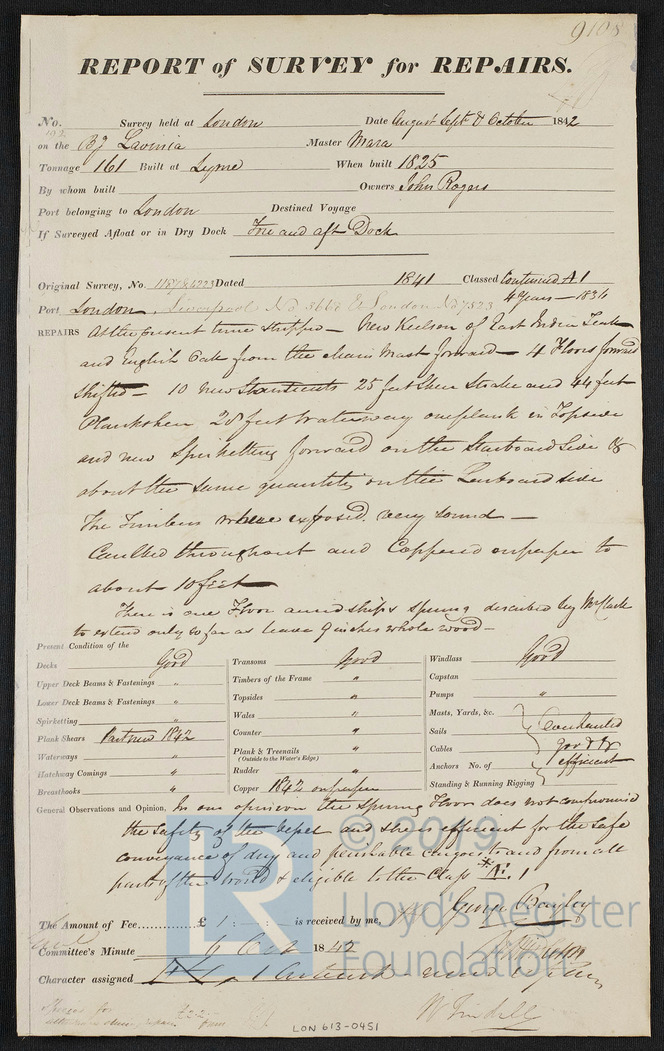 9108
REPORT of SURVEY for REPAIRS.
No. Survey held at London Date August Sept & October 1842
on the Bg Lavinia Master Mara
Tonnage 161 Built at Lyme When built 1825
By whom built Owners John Rogers
Port belonging to London Destined Voyage
If Surveyed Afloat or in Dry Dock Fore and aft Dock
Original Survey, No. Dated 1841 Classed Continued A1
4 Years – 1836
Port London, Liverpool No London No 7523
REPAIRS At the present time stripped – New Keelson of East India Teak
and English Oak from the Main Mast forward – 4 Floors forward
shifted – 10 new Stantients 25 feet Sheer Strake and 44 feet
Planksheer 28 feet Waterway one plank in Topside
and new Spirketting forward on the Starboard Side &
about the same quantity on the Larboard side
The Timbers where exposed very sound –
Caulked throughout and Coppered on paper to
about 10 feet
There is one Floor amidships sprung described by Mr Clark
to extend only so far as leave 9 inches whole wood –
Present Condition of the
Decks Good
Upper Deck Beams & Fastenings "
Lower Deck Beams & Fastenings "
Spirketting "
Plank Shears Part new 1842
Waterways "
Hatchway Comings "
Breasthooks "
Transoms Good
Timbers of the Frame "
Topsides "
Wales "
Counter "
Plank & Treenails "
(Outside to the Water's Edge)
Rudder "
Copper 1842 on paper
Windlass Good
Capstan
Pumps "
Masts, Yards, &c.
Sails
Cables
Anchors No. of
Standing & Running Rigging
good &
efficient
General Observations and Opinion, In our opinion the sprung Floor does not compromise
the safety of the Vessel and she is efficient for the safe
conveyance of dry and perishable cargoes to and from all
parts of the World & eligible to the Class *A1
George Bayley
The Amount of Fee £ 1 : : is received by me,
Committee's Minute 6 Oct 1842
Character assigned
W Tindall
LON 613-0451
© 2019
LR
Lloyd's Register
Foundation